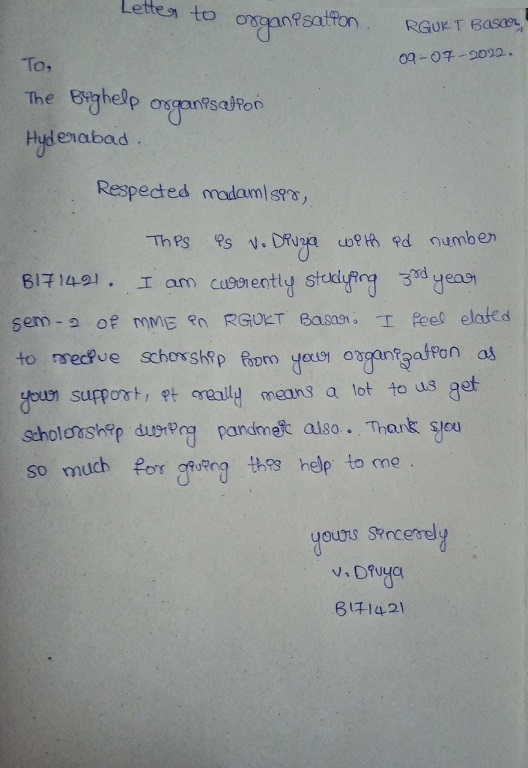 Letter to organisation.
RGUKT Basar,
09-07-2022.
To,
The Bighelp organisation
Hyderabad.
Respected madam/sir,
This is V. Divya with id number
B171421. I am currently studying 3rd year
sem-2 of MME in RGUKT Basar. I feel elated
to recive schorship from your organization as
your support, it really means a lot to us get
scholorship during pandmeic also.. Thank you
so much for giving this help to me.
yours sincerely
V. Divya
B171421